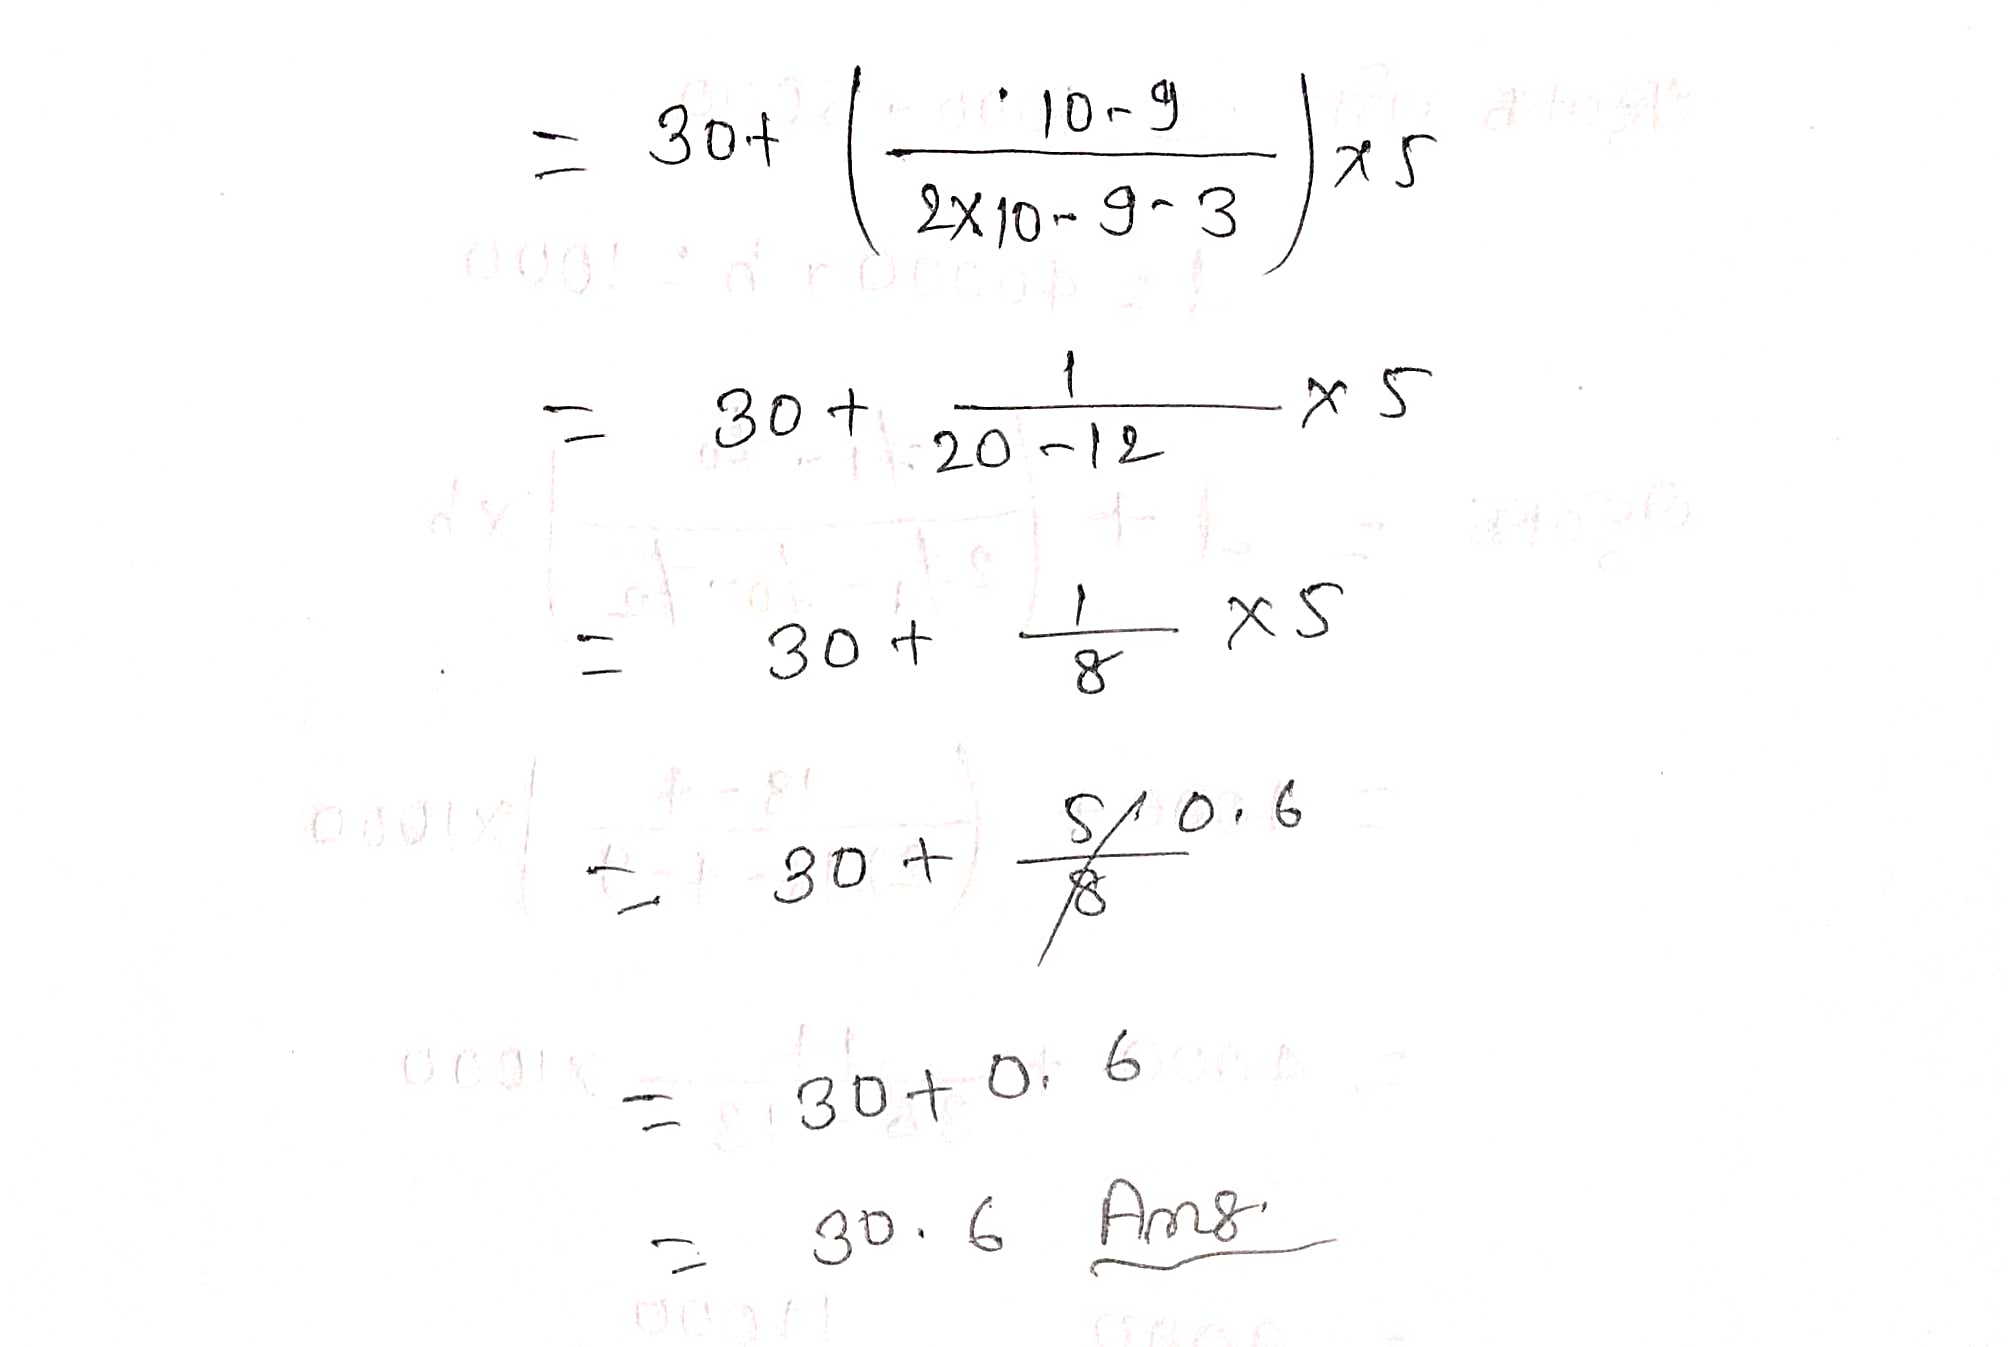 = 30+ (10-9 / 2×10-9-3) ×5
= 30+ 1/20-12 ×5
= 30+ 1/8 ×5
= 30+ 5/8 0.6
= 30+0.6
= 30.6 Ans.